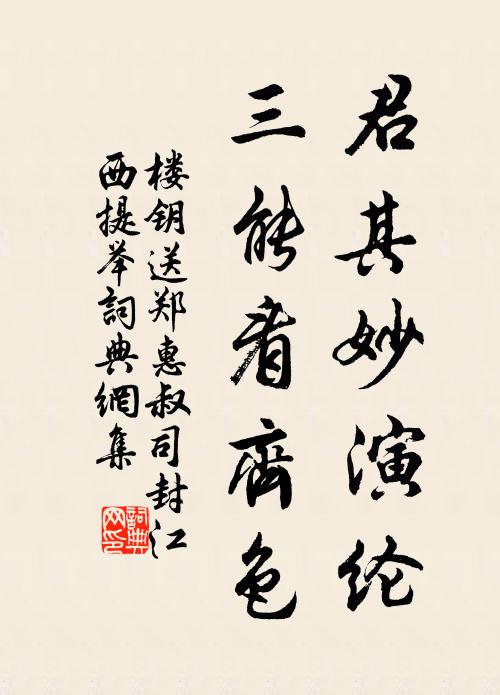 君其妙演纶
三能看齊色
楼钥送郑惠叔司封江
西提举詞典網集
詞典
网印